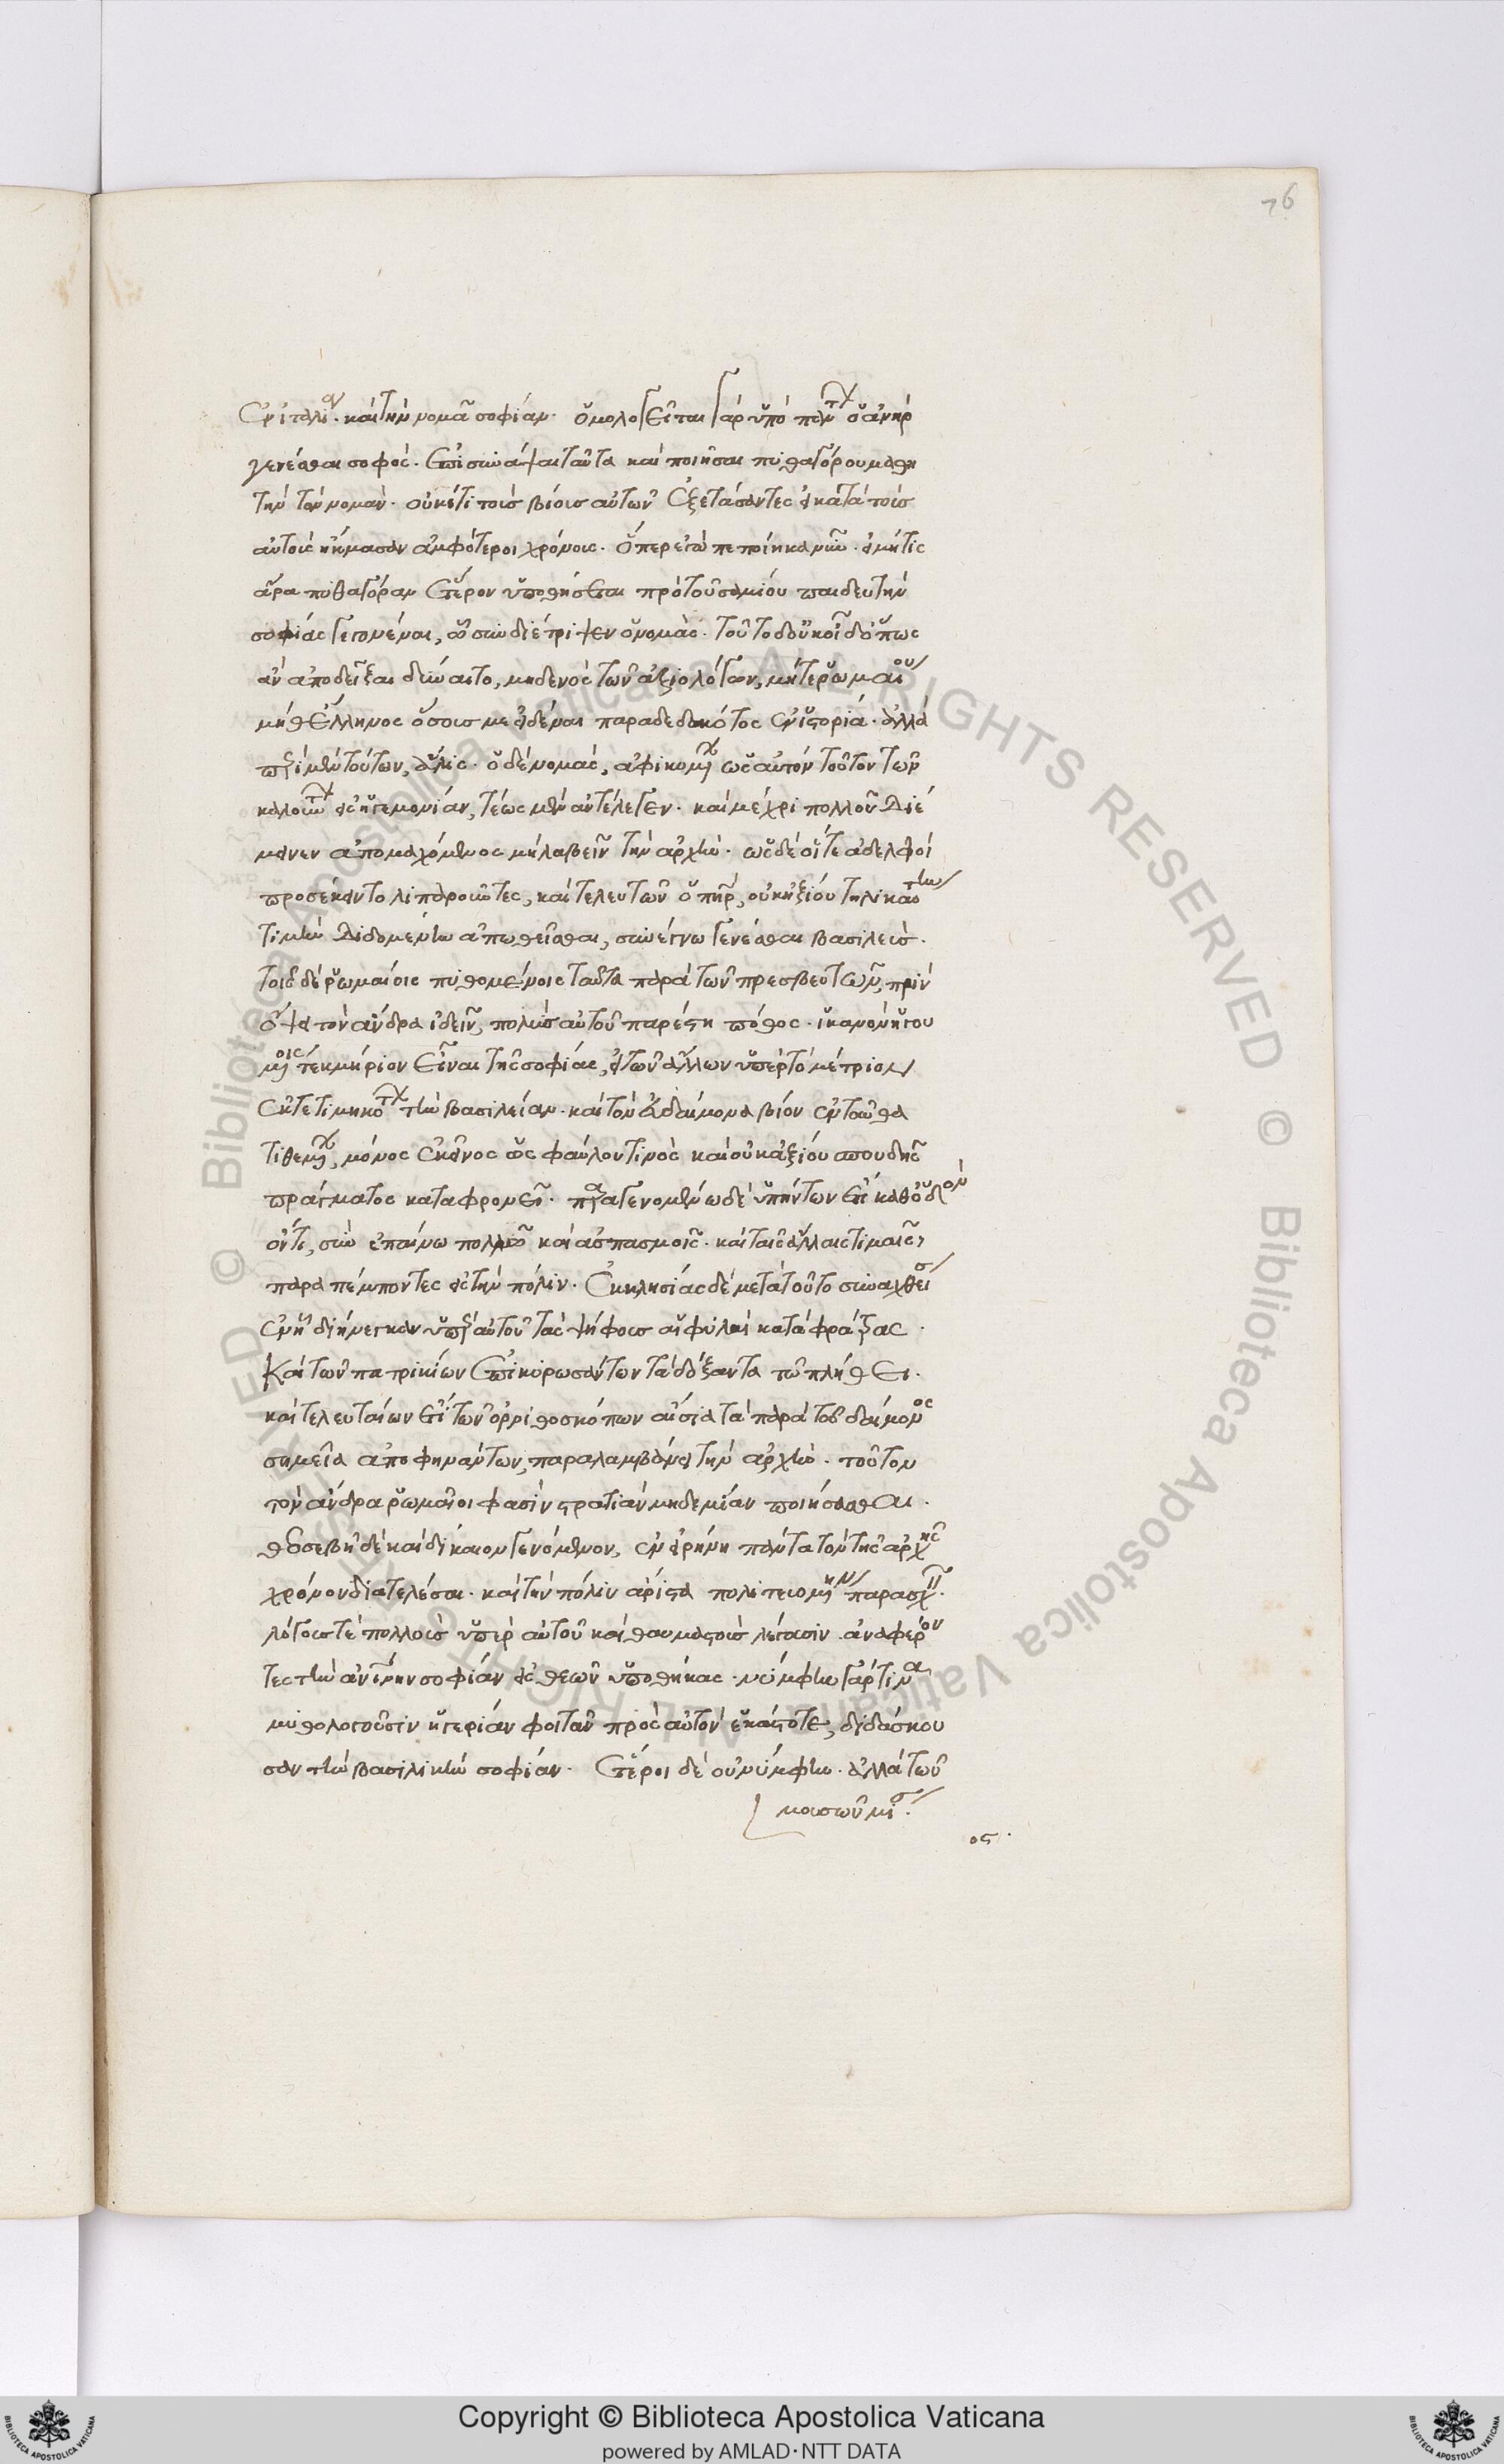 ἐν ἰταλίαν. καὶ τὴν νομᾶ σοφίαν. ὁμολογεῖται γὰρ ὑπὸ πάντων ὁ ἀνὴρ
γενέσθαι σοφός. ἐπισυνάψαι ταῦτα καὶ ποιῆσαι πυθαγόρου μαθη
τὴν τὸν νομᾶν. οὐκέτι τοὺς βίους αὐτῶν ἐξετάσαντες εἰ κατὰ τοὺς
αὐτοὺς ἤκμασαν ἀμφότεροι χρόνους. ὅπερ ἐγὼ πεποίηκα νῦν. εἰ μή τις
ἄρα πυθαγόραν ἕτερον ὑποθήσεται πρὸ τοῦ σαμίου παιδευτὴν
σοφίας γεγονέναι, ᾧ συνδιέτριψεν ὁ νομᾶς. τοῦτο δ οὐκ οἶδ ὅπως
ἂν ἀποδεῖξαι δύναιτο, μηδενὸς τῶν ἀξιολόγων, μήτε ῥωμαίου
μήθ ἕλληνος ὅσους με εἰδέναι παραδεδωκότος ἐν ἱστορία. ἀλλὰ
περὶ μὲν τούτων, ἅλις. ὁ δὲ νομᾶς, ἀφικομένων ὡς αὐτὸν τοῦτον τῶν
καλούντων εἰς ἡγεμονίαν, τέως μὲν ἀντέλεγεν. καὶ μέχρι πολλοῦ διέ
μεινεν ἀπομαχόμενος μὴ λαβεῖν τὴν ἀρχήν. ὡς δὲ οἵ τε ἀδελφοὶ
προσέκειντο λιπαροῦντες, καὶ τελευτῶν ὁ πατήρ, οὐκ ἠξίου τηλικαύτην
τιμὴν διδομένην ἀπωθεῖσθαι, συνέγνω γενέσθαι βασιλεύς.
τοῖς δὲ ῥωμαίοις πυθομένοις ταῦτα παρὰ τῶν πρεσβευτῶν, πρὶν
ὄψει τὸν ἄνδρα ἰδεῖν, πολὺς αὐτοῦ παρέστη πόθος. ἱκανὸν ἡγου
μένοις τεκμήριον εἶναι τῆς σοφίας, εἰ τῶν ἄλλων ὑπὲρ τὸ μέτριον
ἐκτετιμηκότων τὴν βασιλείαν. καὶ τὸν εὐδαίμονα βίον ἐνταῦθα
τιθεμένων, μόνος ἐκεῖνος ὡς φαύλου τινὸς καὶ οὐκ ἀξίου σπουδῆς
πράγματος καταφρονεῖ. παραγενομένω δὲ ὑπήντων ἔτι καθ ὁδὸν
ὄντι, σὺν ἐπαίνω πολλῷ καὶ ἀσπασμοῖς. καὶ ταῖς ἄλλαις τιμαῖς,
παραπέμποντες εἰς τὴν πόλιν. ἐκκλησίας δὲ μετὰ τοῦτο συναχθείσ
ἐν ᾗ διήνεγκαν ὑπὲρ αὐτοῦ τὰς ψήφους αἱ φυλαὶ κατὰ φράτρας.
καὶ τῶν πατρικίων ἐπικυρωσάντων τὰ δόξαντα τῷ πλήθει.
καὶ τελευταίων ἔτι τῶν ὀρνιθοσκόπων αἴσια τὰ παρὰ τοῦ δαίμονος
σημεῖα ἀποφηνάντων, παραλαμβάνει τὴν ἀρχήν. τοῦτον
τὸν ἄνδρα ῥωμαῖοι φασὶν στρατιὰν μηδεμίαν ποιήσασθαι.
θεοσεβῆ δὲ καὶ δίκαιον γενόμενον, ἐν εἰρήνη πάντα τὸν τῆς ἀρχῆς
χρόνον διατελέσαι. καὶ τὴν πόλιν ἄριστα πολιτευομένην παρασχεῖν.
λόγους τὲ πολλοὺς ὑπὲρ αὐτοῦ καὶ θαυμαστοὺς λέγουσιν. ἀναφέρον
τες τὴν ἀνθρωπίνην σοφίαν εἰς θεῶν ὑποθήκας. νύμφην γάρ τινα
μυθολογοῦσιν ἠγερίαν φοιτᾶν πρὸς αὐτὸν ἑκάστοτε, διδάσκου
σαν τὴν βασιλικὴν σοφίαν. ἕτεροι δὲ οὐ νύμφην. ἀλλὰ τῶν
μουσῶν μίαν.